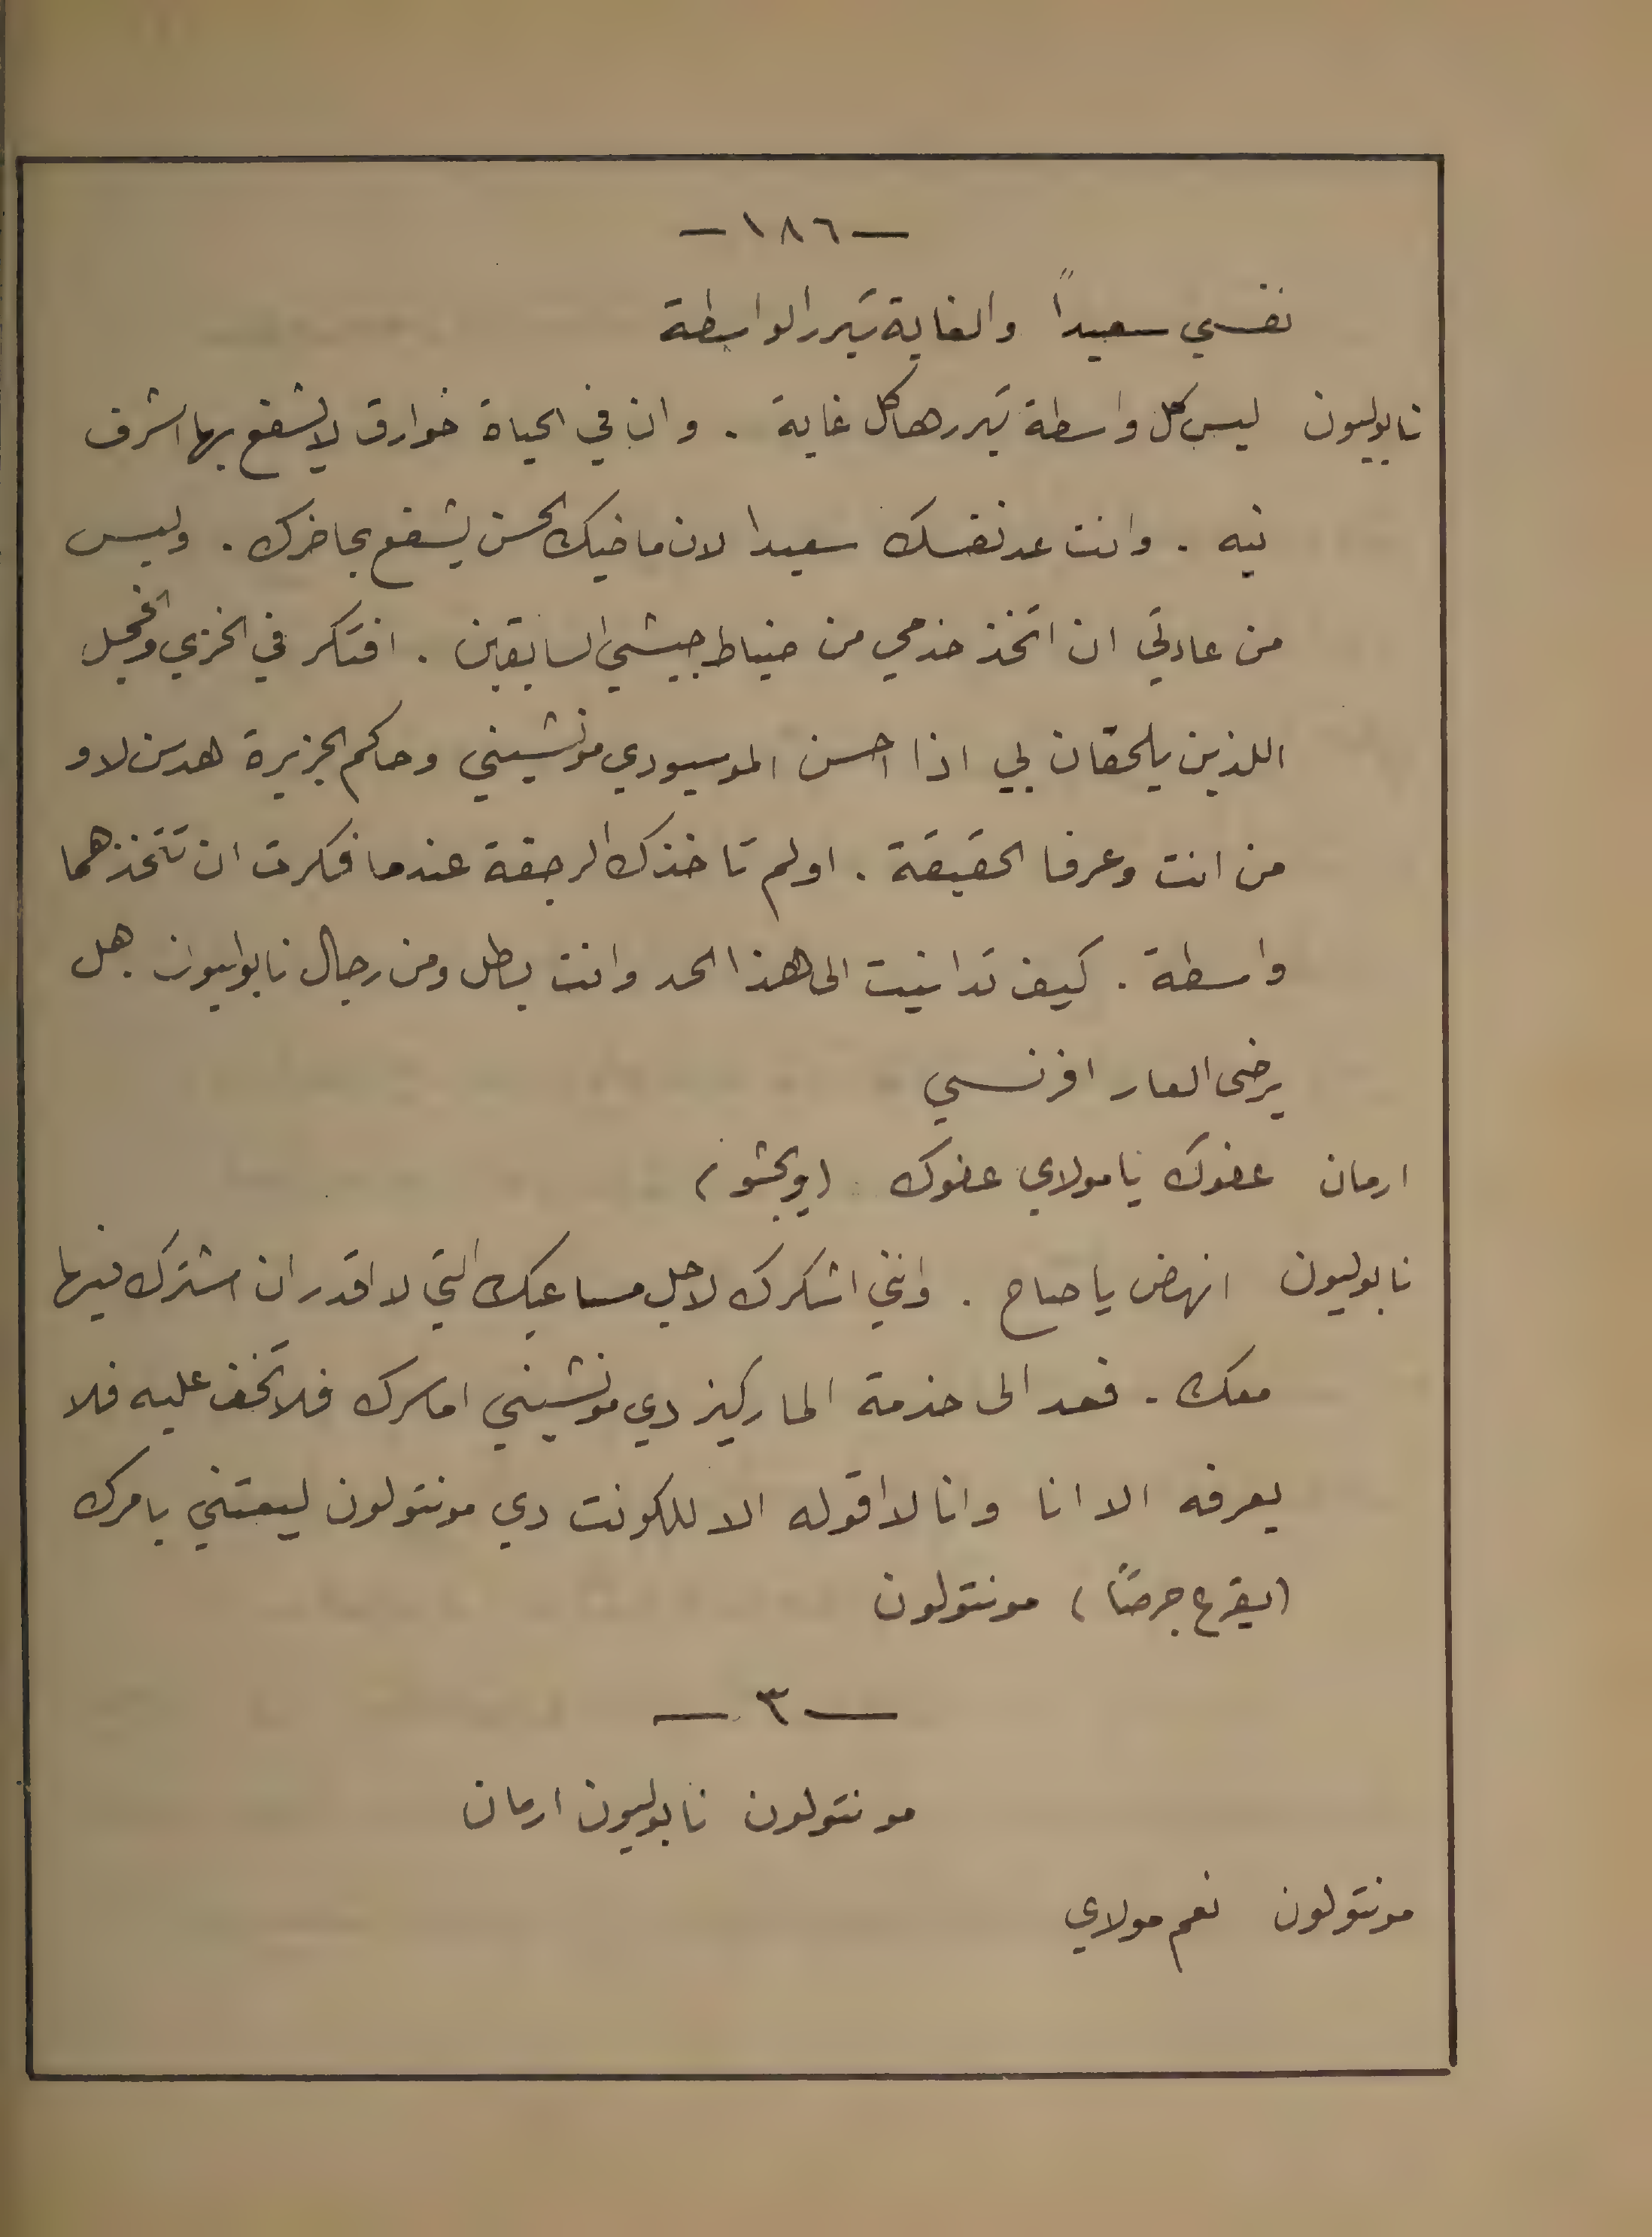 — ١٨٦ —
نفسي سعيداً والغاية تبرر الواسطة
نابوليون ليس كل واسطة تبررها كل غاية . وان في الحياة خوارق لا يشفع بها اشرف
نيه . وانت عد نفسك سعيدا لان ماضيك الحسن يشفع بحاضرك . وليس
من عادتي ان اتخذ خدمي من ضباط جيشي السابقين . افتكر في الخزي والخجل
اللذين يلحقان بي اذا احسن الموسيودي مونشيني وحاكم الجزيرة هدسن لاو
من انت وعرفا الحقيقة . اولم تاخذك الرجفة عندما فكرت ان تتخذهما
واسطة . كيف تدانيت الى هذا الحد وانت بطل ومن رجال نابوليون . هل
يرضى العار افرنسي
ارمان عفوك يا مولاي عفوك (ويجثو)
نابوليون انهض يا صاح . وانني اشكرك لاجل مساعيك التي لا اقدر ان اشترك فيها
معك . فعد الى خدمة الماركيز دي مونشيني اما سرك فلا تخف عليه فلا
يعرفه الا انا وانا لا اقوله الا للكونت دي مونتولون ليعتني بامرك
(يقرع جرصًا) مونتولون
— ٣ —
مونتولون نابوليون ارمان
مونتولون نعم مولاي